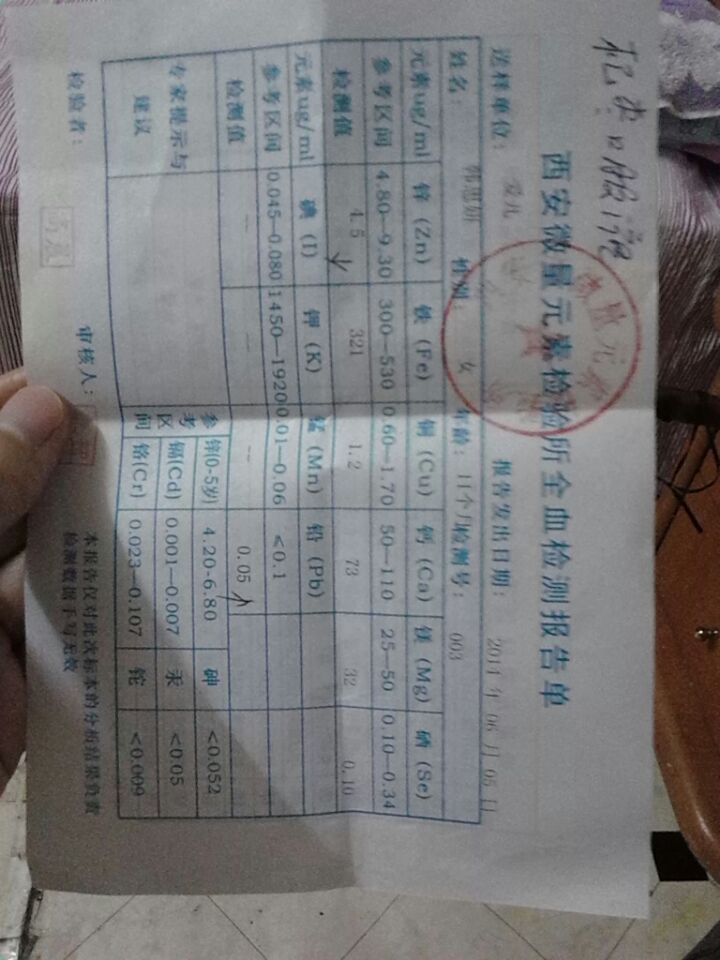 西安微量元素检验所全血检测报告单
送样单位： 爱儿 报告发出日期： 2014 年 06 月 05 日
姓名： 性别： 女 年龄： 11个月 检测号： 003
元素ug/ml 锌 (Zn) 铁 (Fe) 铜 (Cu) 钙 (Ca) 镁 (Mg) 硒 (Se)
参考区间 4.80—9.30 300—530 0.60—1.70 50—110 25—50 0.10—0.34
检测值 4.5 ↓ 321 1.2 73 32 0.10
元素ug/ml 碘 (I) 钾 (K) 锰 (Mn) 铅 (Pb)
参考区间 0.045—0.080 1450—1920 0.01—0.06 <0.1
检测值 — — — 0.05 ↑
专家提示与建议
参考区间
锌(0-5岁) 4.20-6.80 砷 <0.052
镉(Cd) 0.001—0.007 汞 <0.05
铬(Cr) 0.023—0.107 铊 <0.009
检验者： 审核人： 本报告仅对此次标本的分析结果负责
检测数据手写无效